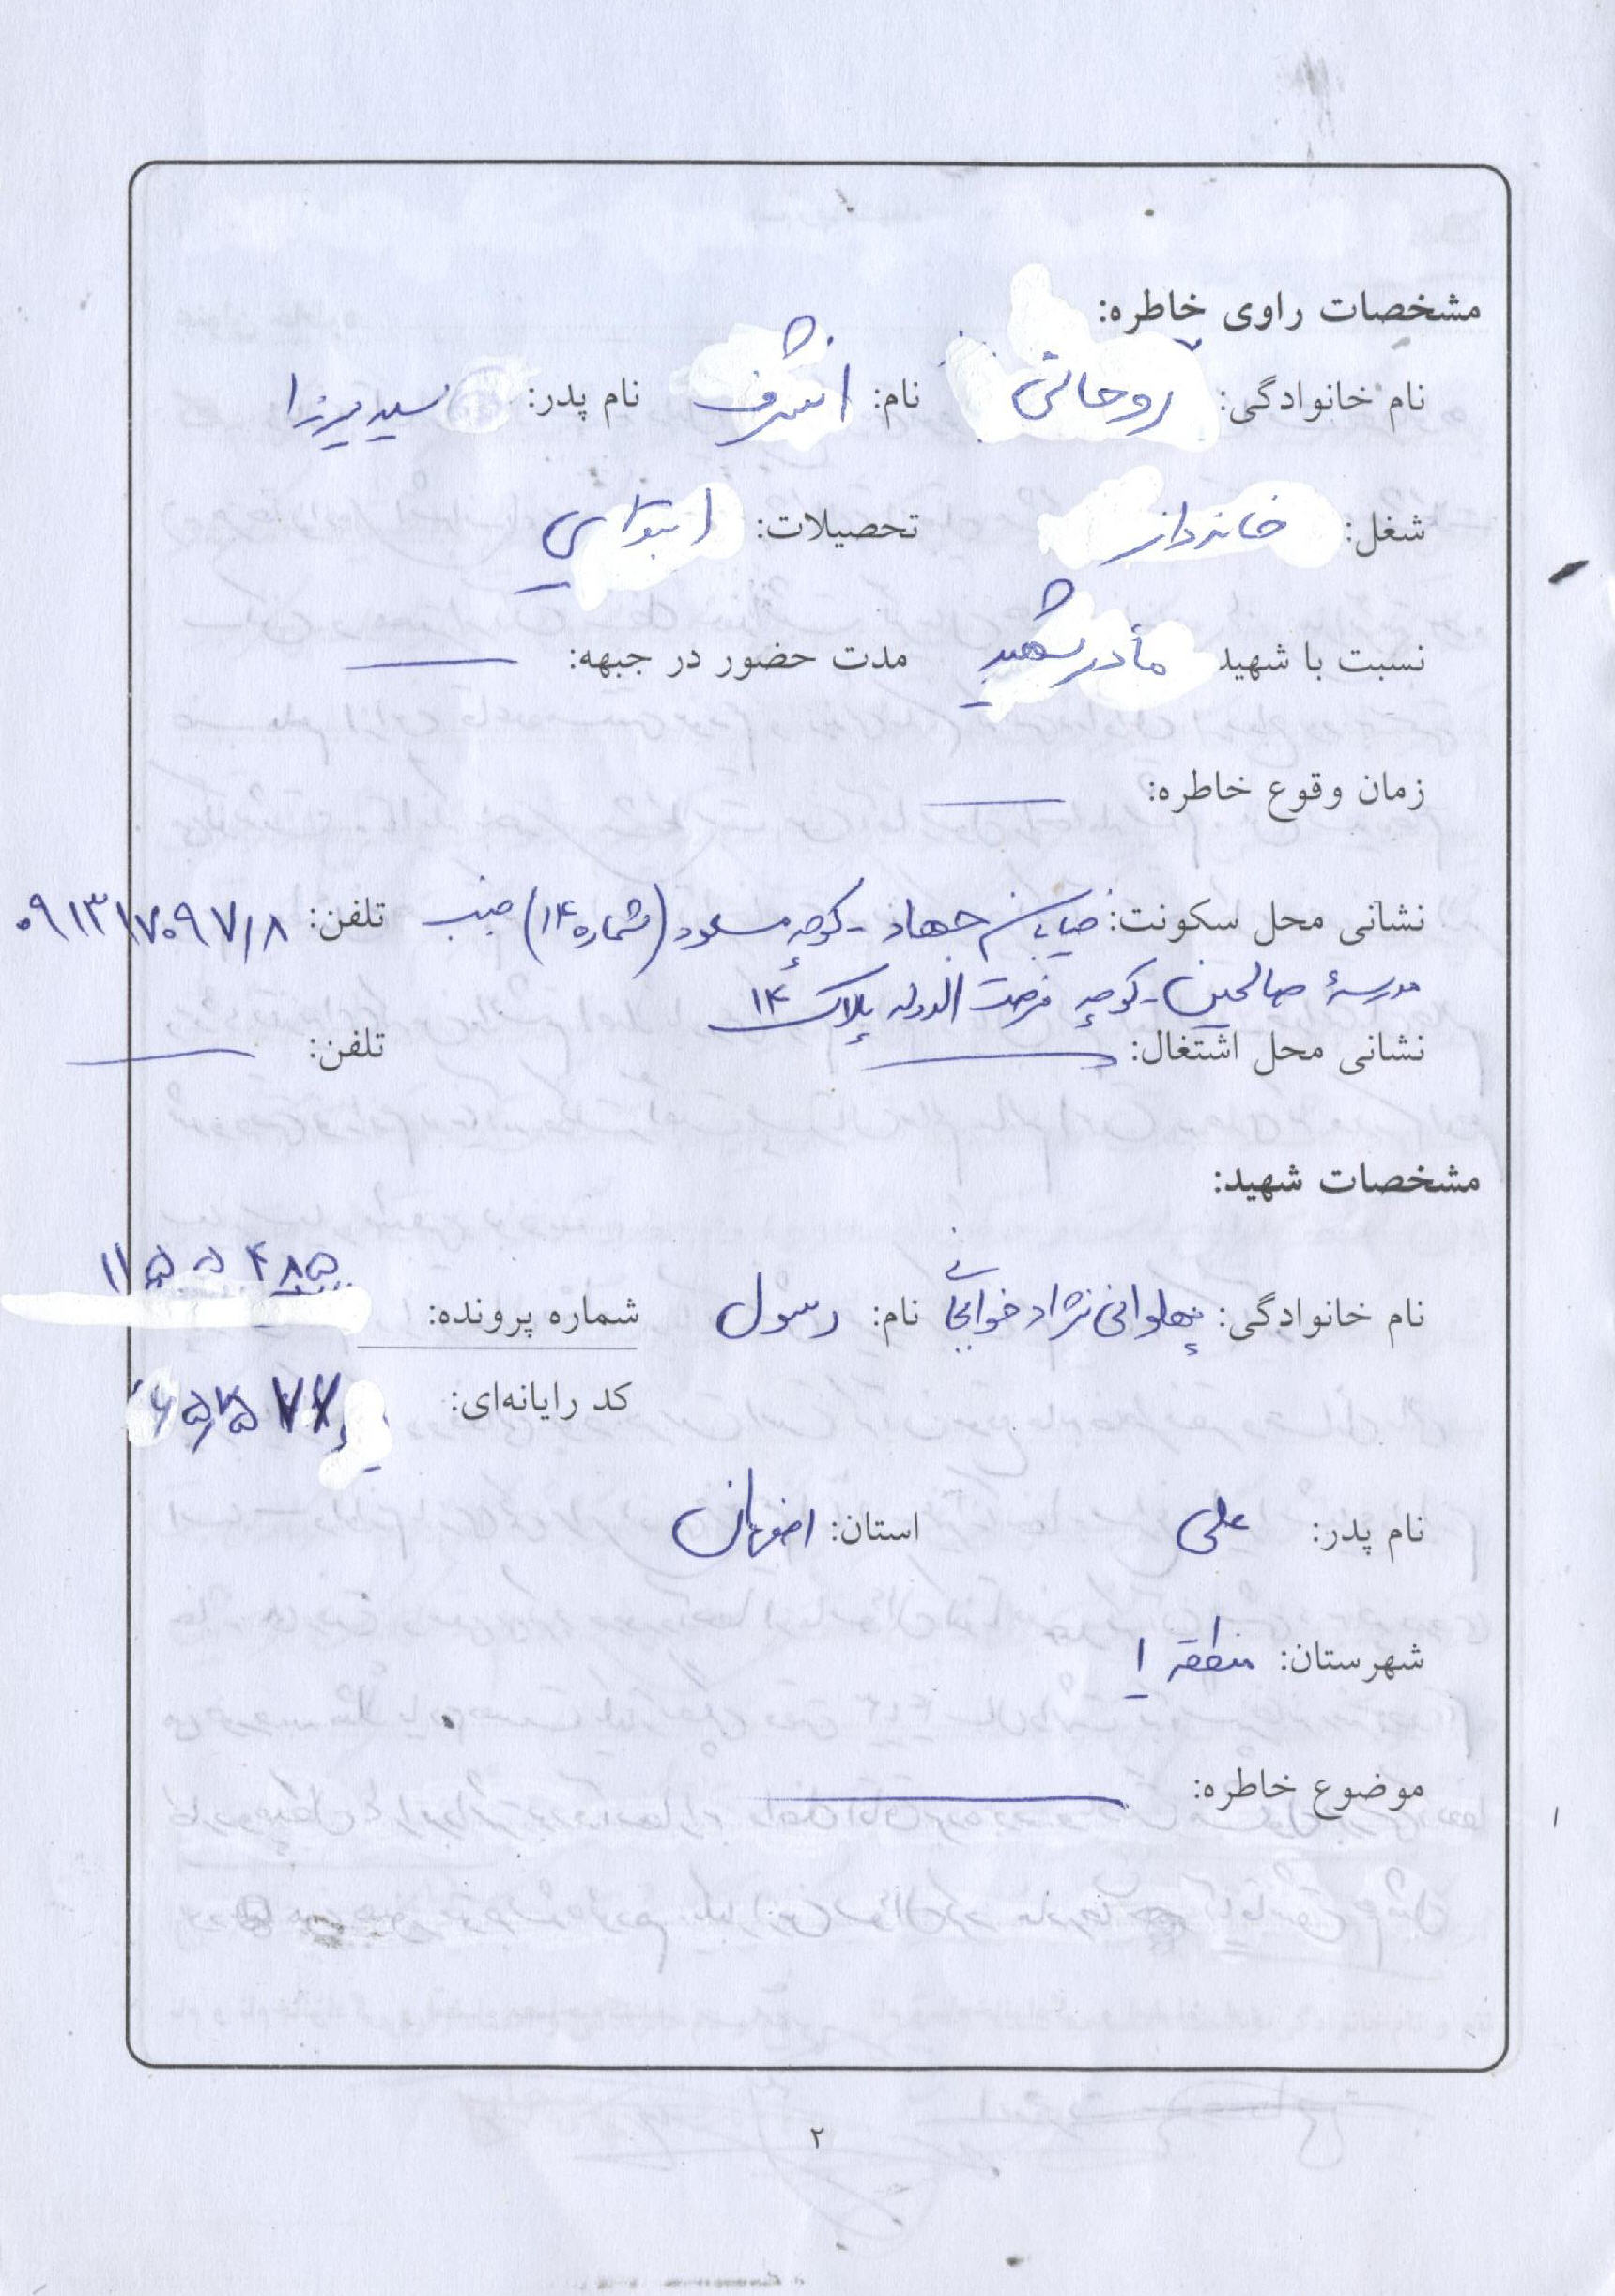 مشخصات راوی خاطره:
نام خانوادگی: روحانی نام: اشرف نام پدر: سید میرزا
شغل: خانه‌دار تحصیلات: ابتدایی
نسبت با شهید مادر شهید مدت حضور در جبهه: ــــ
زمان وقوع خاطره: ــــ
نشانی محل سکونت: خیابان جهاد - کوچه مسعود (شماره ۱۴) جنب تلفن:
مدرسهٔ صالحین - کوچه فرصت الدوله پلاک ۱۴
نشانی محل اشتغال: ــــ تلفن: ــــ
مشخصات شهید:
نام خانوادگی: پهلوانی نژاد نام: رسول شماره پرونده:
کد رایانه‌ای:
نام پدر: علی استان: اصفهان
شهرستان: منطقه ۱
موضوع خاطره: ــــ
۲